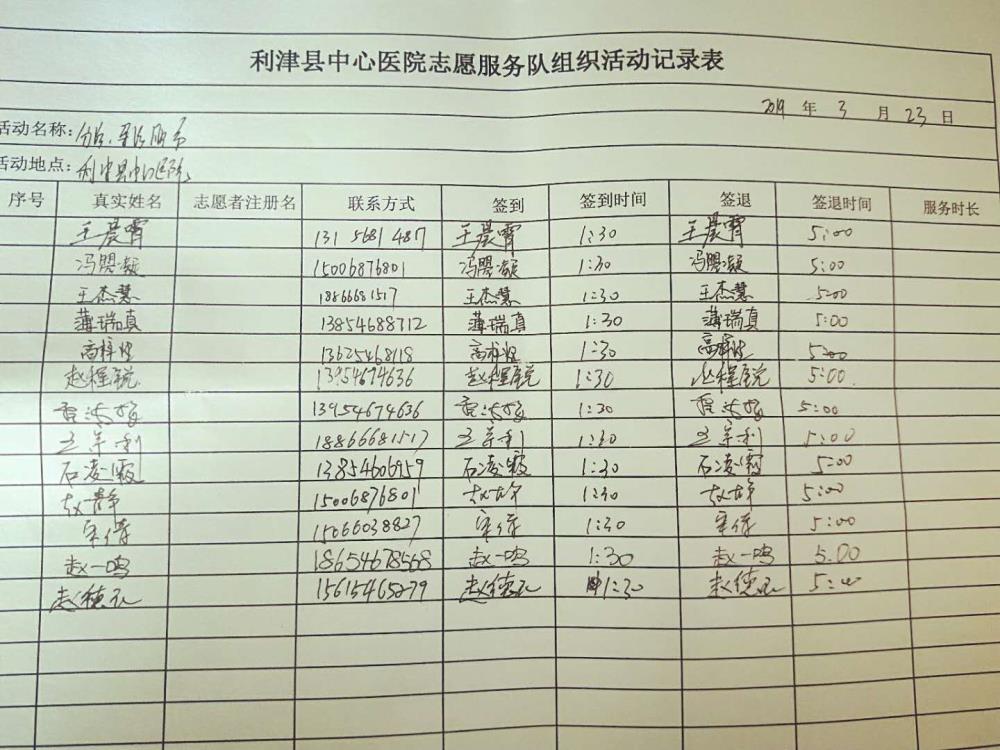 利津县中心医院志愿服务队组织活动记录表
2019 年 3 月 23 日
活动名称:
活动地点: 利津县中心医院
序号 真实姓名 志愿者注册名 联系方式 签到 签到时间 签退 签退时间 服务时长
王晨霄 131 5681 487 王晨霄 1:30 王晨霄 5:00
冯盟凝 15006876801 冯盟凝 1:30 冯盟凝 5:00
王杰慧 18866681517 王杰慧 1:30 王杰慧 5:00
薄瑞真 13854688712 薄瑞真 1:30 薄瑞真 5:00
高梓煜 13625468118 高梓煜 1:30 高梓煜 5:00
赵程锐 13954674636 赵程锐 1:30 赵程锐 5:00
13954674636 1:30 5:00
18866681517 1:30 5:00
石凌霞 13854606959 石凌霞 1:30 石凌霞 5:00
赵静 15006876801 赵静 1:30 赵静 5:00
宋倩 15066038827 宋倩 1:30 宋倩 5:00
赵一鸣 18654678568 赵一鸣 1:30 赵一鸣 5:00
赵德孔 15615465279 赵德孔 1:30 赵德孔 5:00